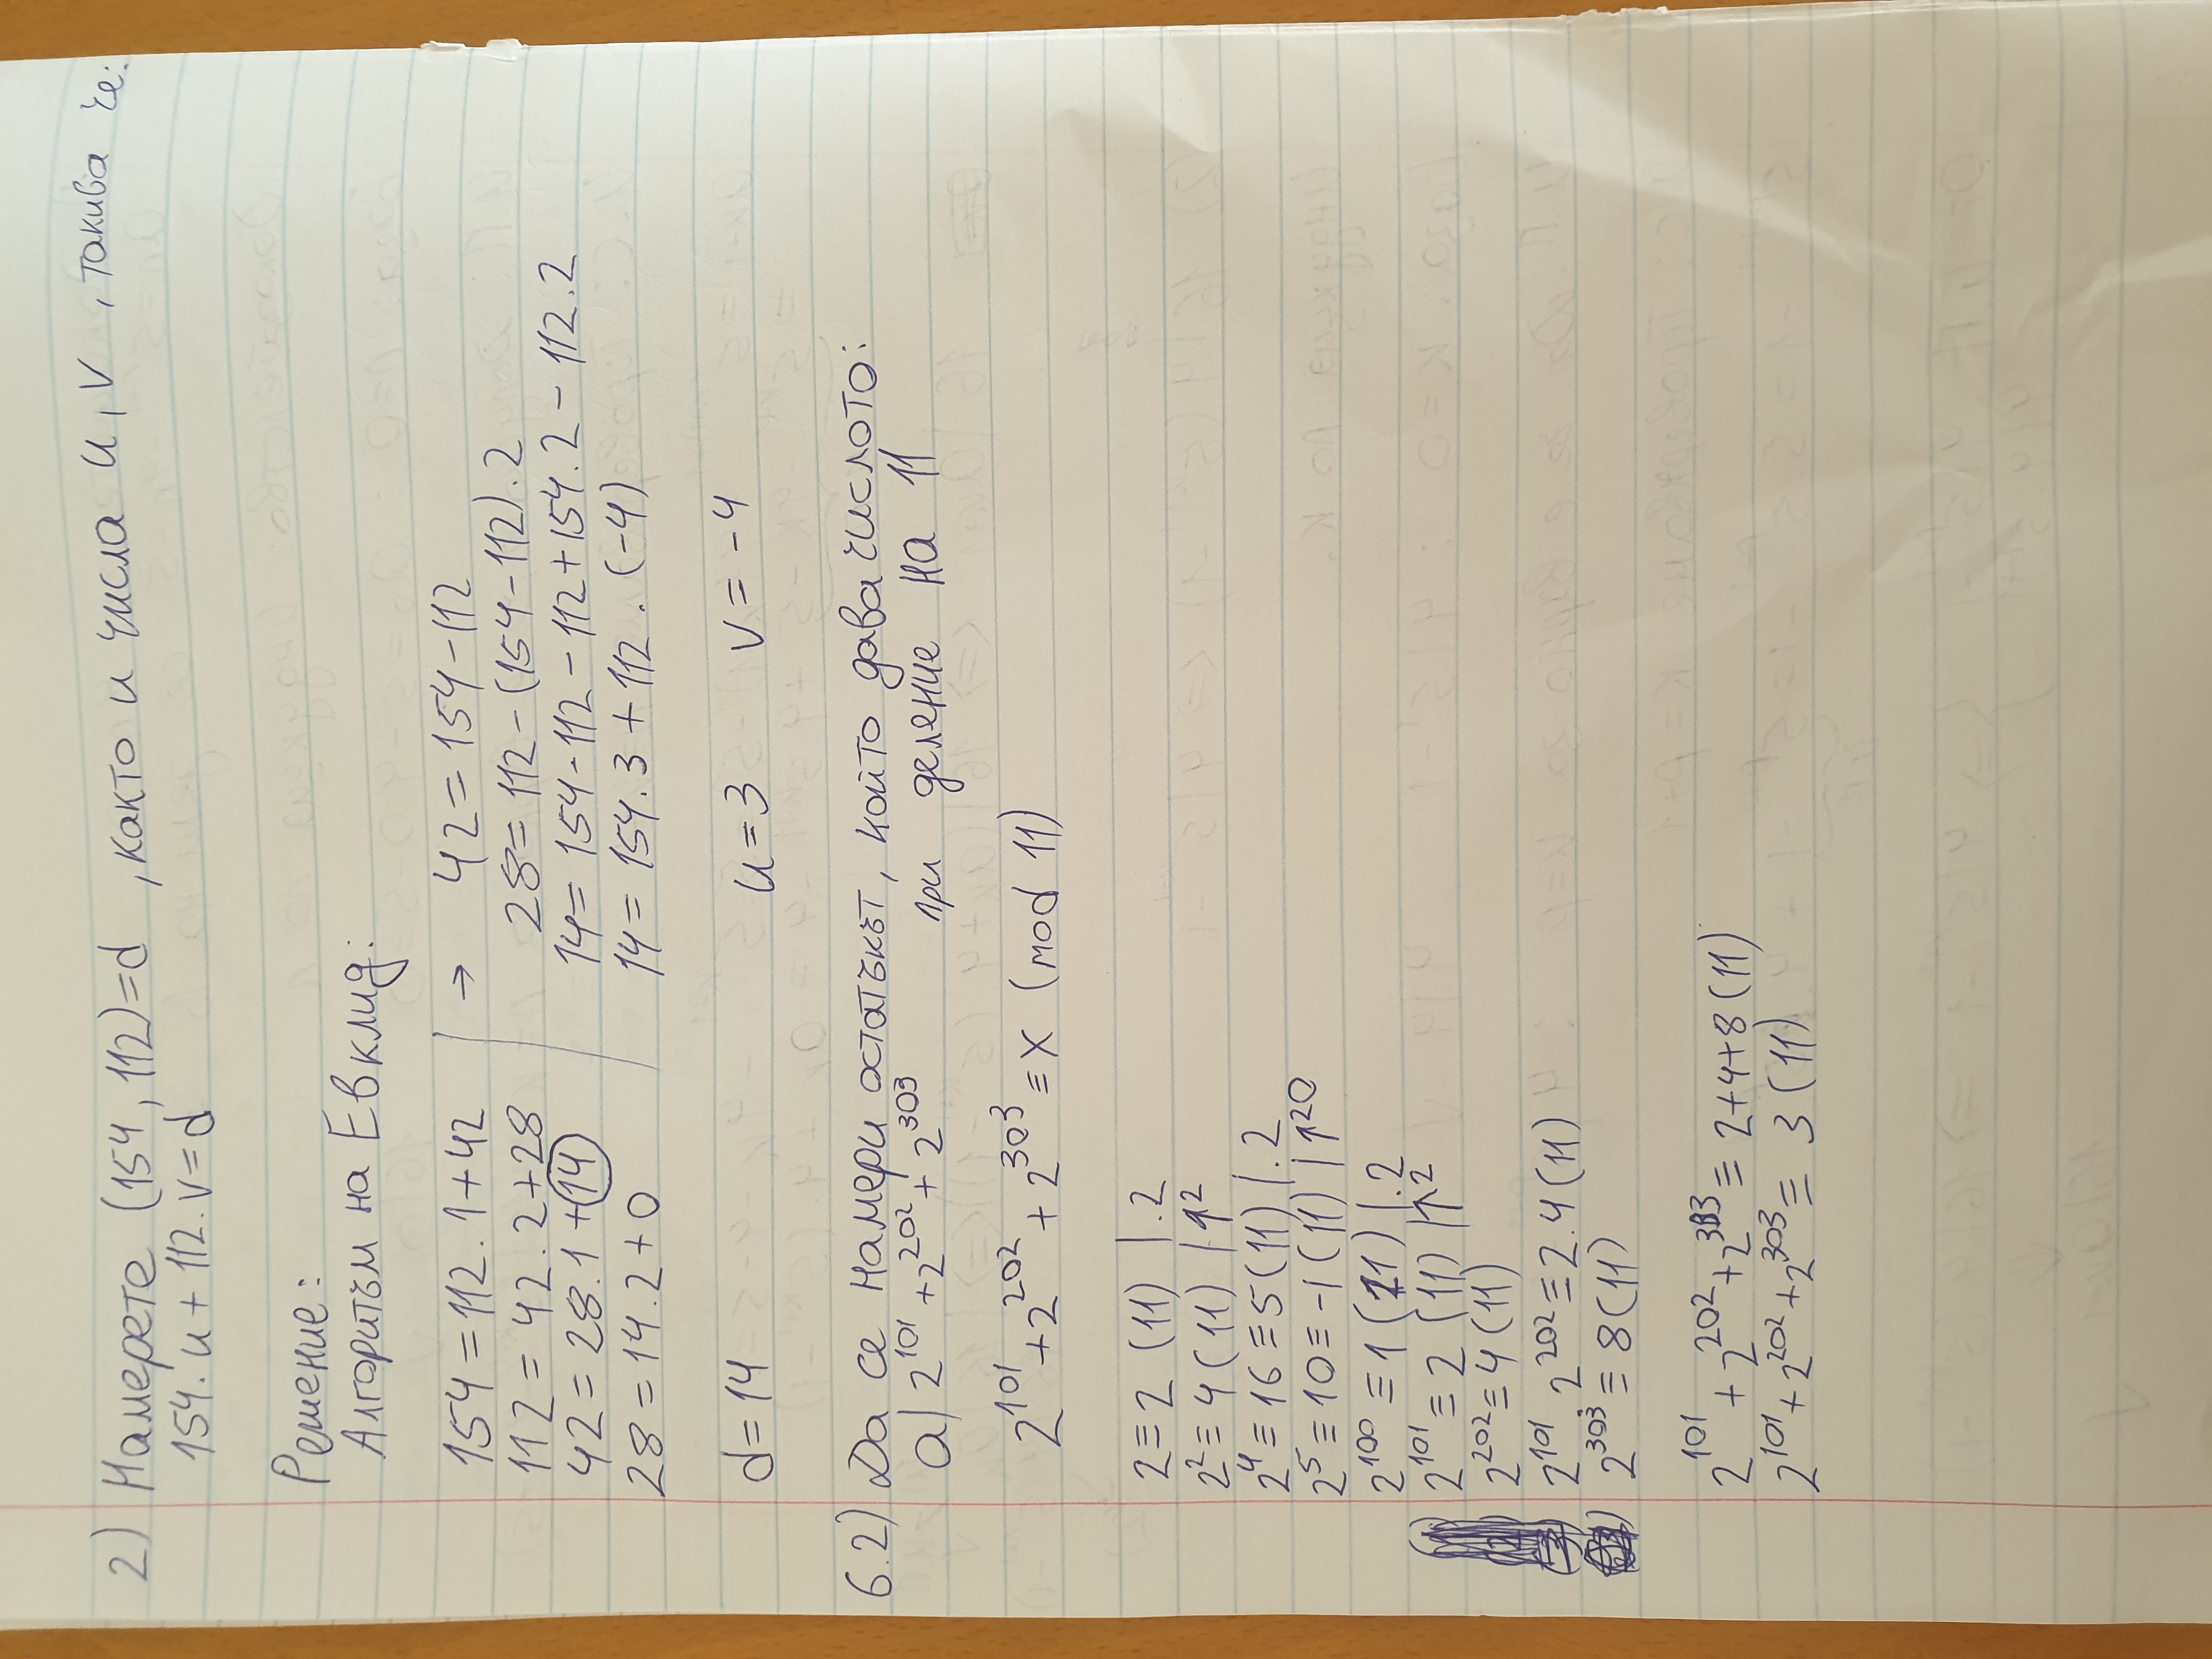 2) Намерете (154, 112)=d , както и числа u, v , такива че:
154. u + 112. v = d
Решение:
Алгоритъм на Евклид:
154 = 112. 1 + 42 → 42 = 154 - 112
112 = 42. 2 + 28 28 = 112 - (154 - 112). 2
42 = 28. 1 + 14 14 = 154 - 112 - 112 + 154. 2 - 112. 2
28 = 14. 2 + 0 14 = 154. 3 + 112. (-4)
d = 14 u = 3 v = -4
6.2) Да се намери остатъкът, който дава числото:
а) 2¹⁰¹ + 2²⁰² + 2³⁰³ при деление на 11
2¹⁰¹ + 2²⁰² + 2³⁰³ ≡ x (mod 11)
2 ≡ 2 (11) |. 2
2² ≡ 4 (11) |↑²
2⁴ ≡ 16 ≡ 5 (11) |. 2
2⁵ ≡ 10 ≡ -1 (11) |↑²⁰
2¹⁰⁰ ≡ 1 (11) |. 2
2¹⁰¹ ≡ 2 (11) |↑²
2²⁰² ≡ 4 (11)
2¹⁰¹. 2²⁰² ≡ 2. 4 (11)
2³⁰³ ≡ 8 (11)
2¹⁰¹ + 2²⁰² + 2³⁰³ ≡ 2+4+8 (11)
2¹⁰¹ + 2²⁰² + 2³⁰³ ≡ 3 (11)